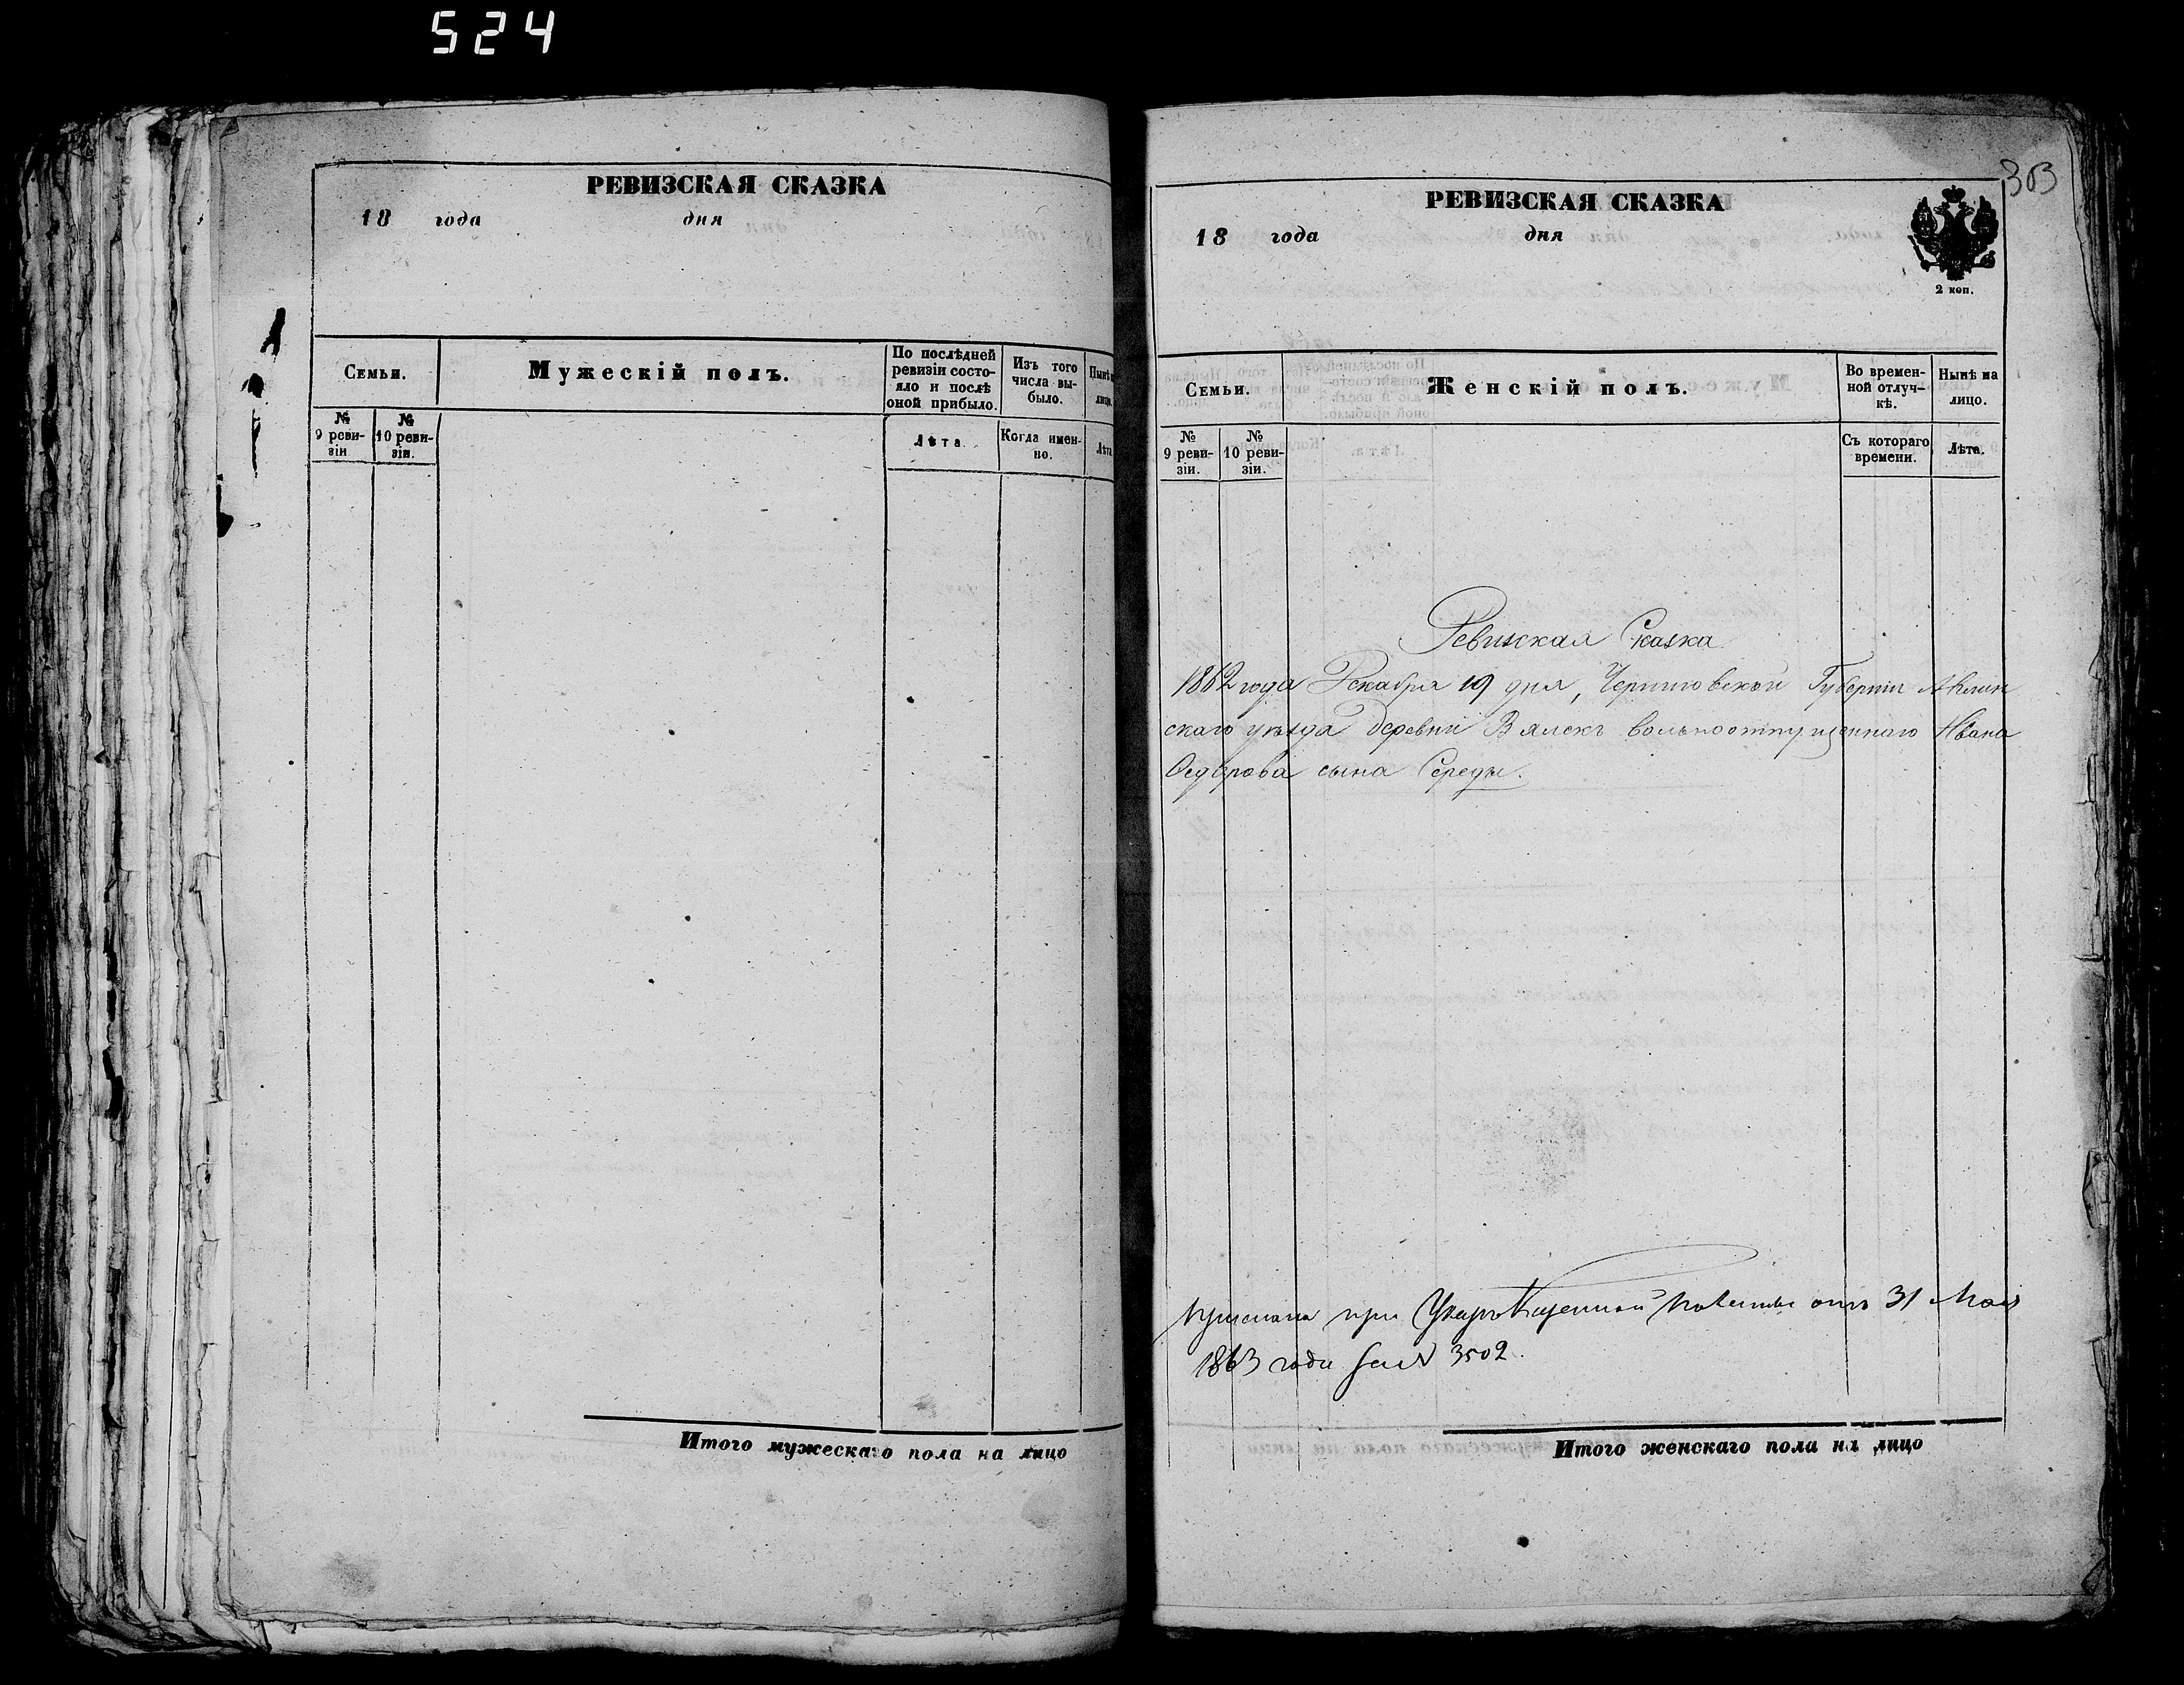 524
РЕВИЗСКАЯ СКАЗКА
18 года дня
Семьи.
Мужескій полъ.
По послѣдней ревизіи состо-
яло и послѣ
оной прибыло.
Изъ того
числа вы-
было.
Нынѣ
лицо.
№
9 реви-
зіи
№
10 реви-
зіи.
Лѣта.
Когда имен-
но.
Лѣта
Итого мужескаго пола на лицо
303
РЕВИЗСКАЯ СКАЗКА
18 года дня
2 коп.
Семьи.
Женскій полъ.
Во времен-
ной отлуч-
кѣ.
Нынѣ на
лицо.
№
9 реви-
зіи.
№
10 реви-
зіи.
Съ котораго
времени.
Лѣта.
Ревизская Сказка
1862 года Декабря 19 дня, Черниговской Губерніи
скаго уѣзда деревни Вялекъ вольноотпущеннаго Ивана
Федорова сына Середы.
при Указѣ Казенной Палаты отъ 31 Мая
1863 года за № 3502.
Итого женскаго пола на лицо